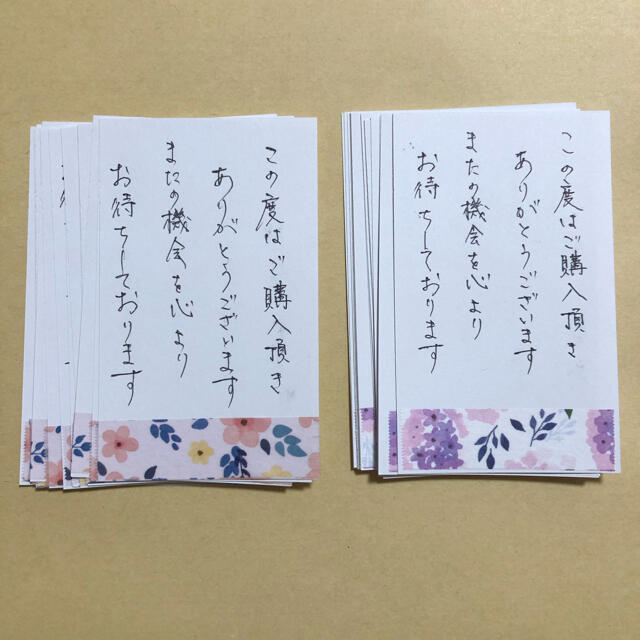 この度はご購入頂き
ありがとうございます
またの機会を心より
お待ちしております
この度はご購入頂き
ありがとうございます
またの機会を心より
お待ちしております